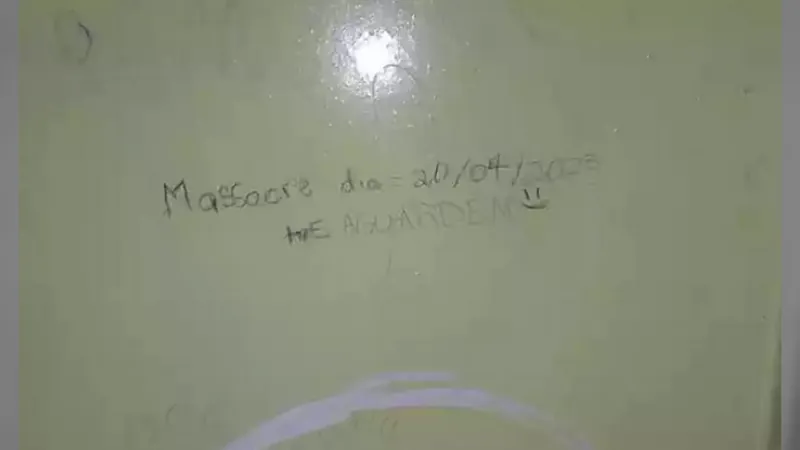 Massacre dia = 20/04/2023
ME AGUARDEM